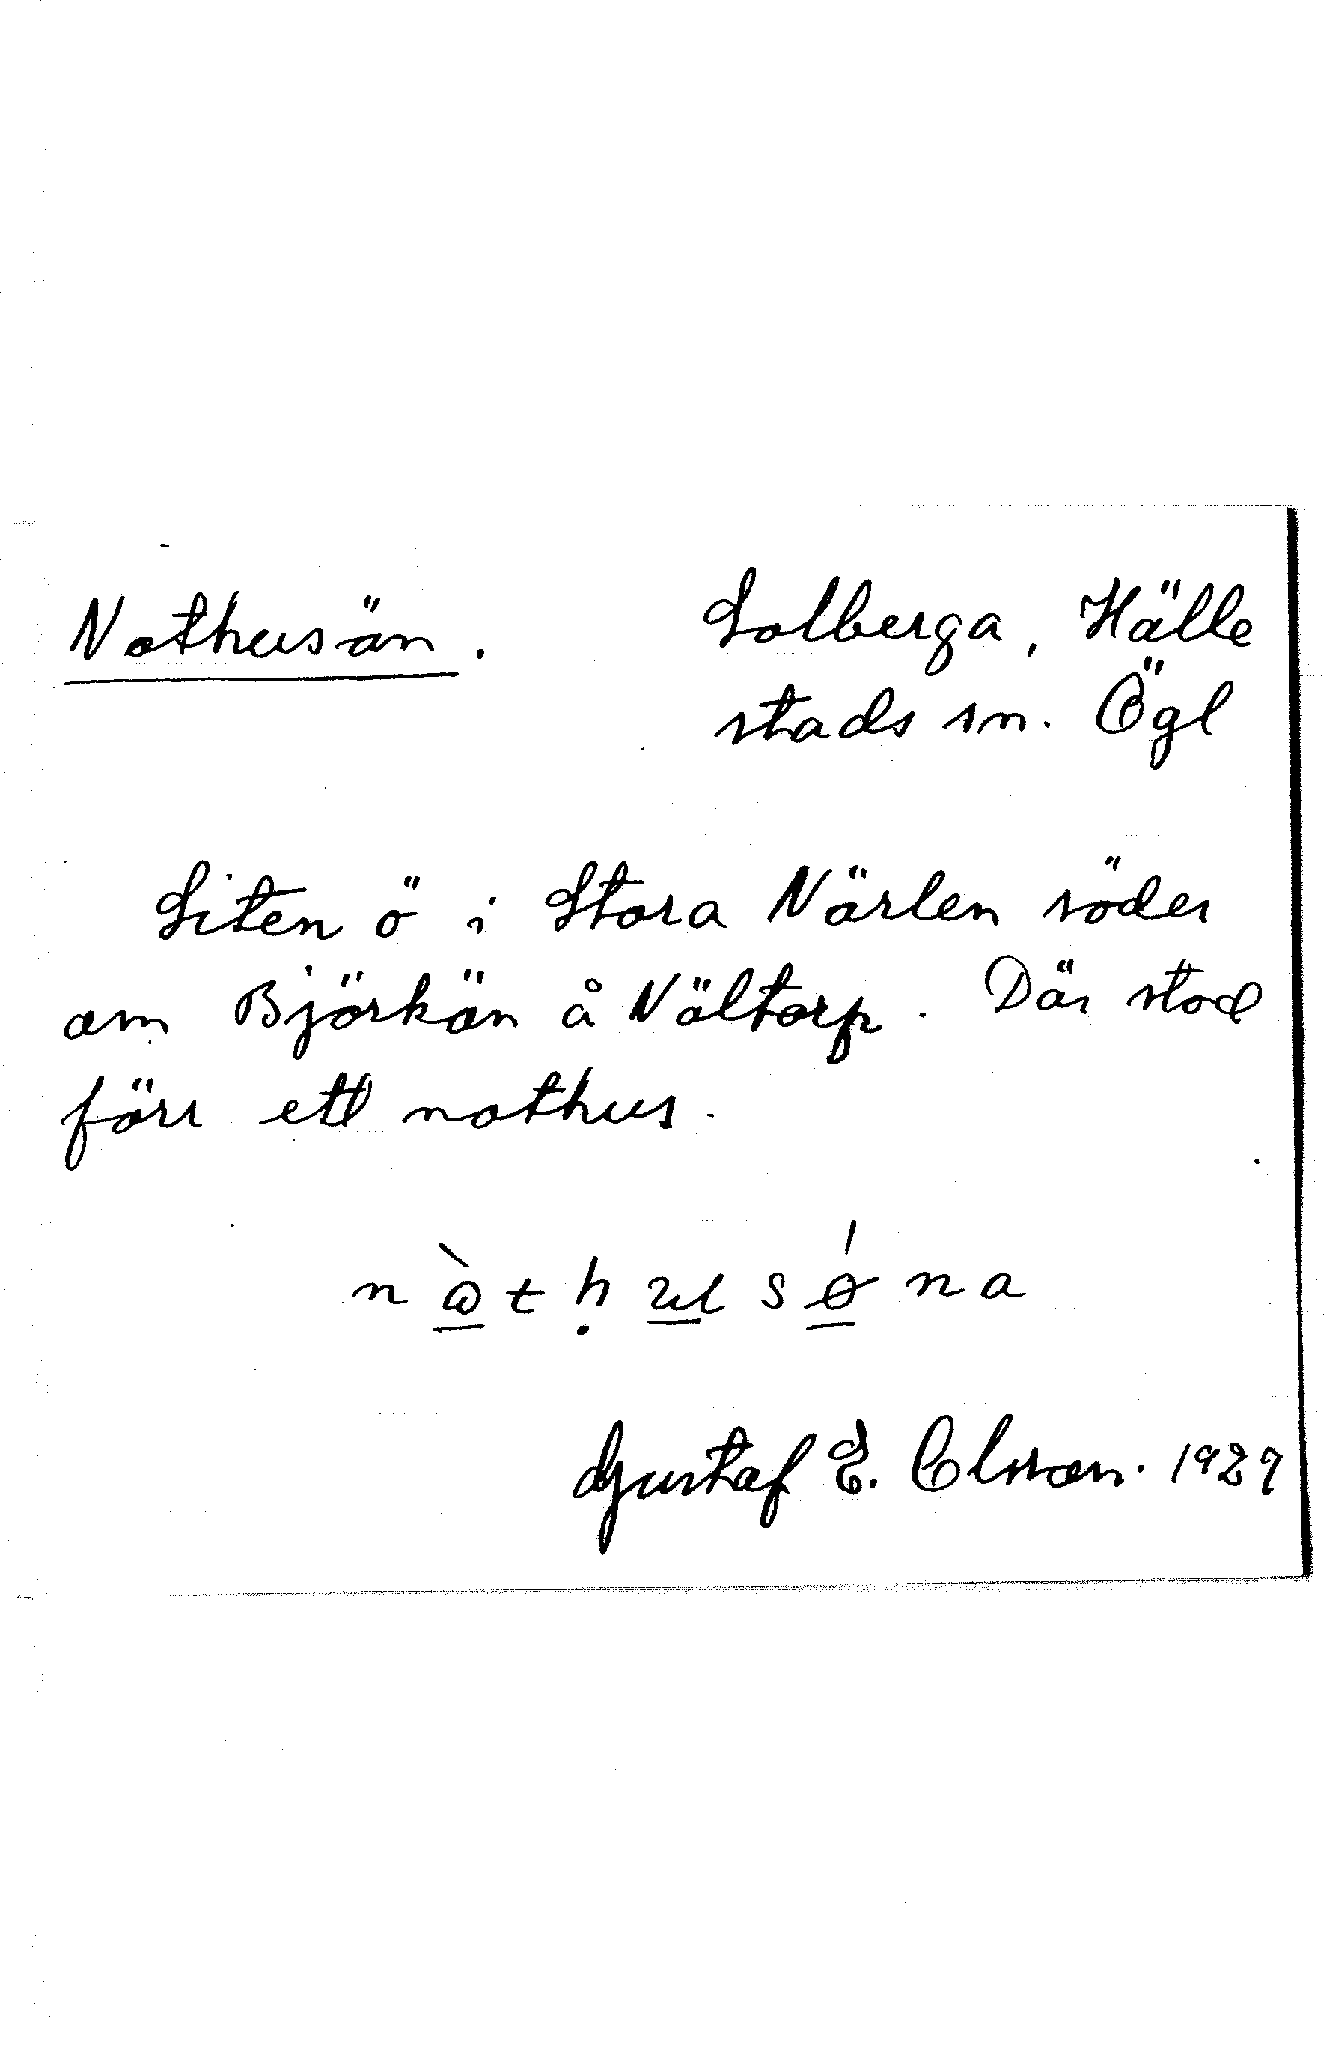 Nothusön.
Solberga, Hälle
stads sn. Ögl
Liten ö i Stora Närlen söder
om Björkön å Nältorp. Där stod
förr ett nothus.
Gustaf E. Olsson. 1929